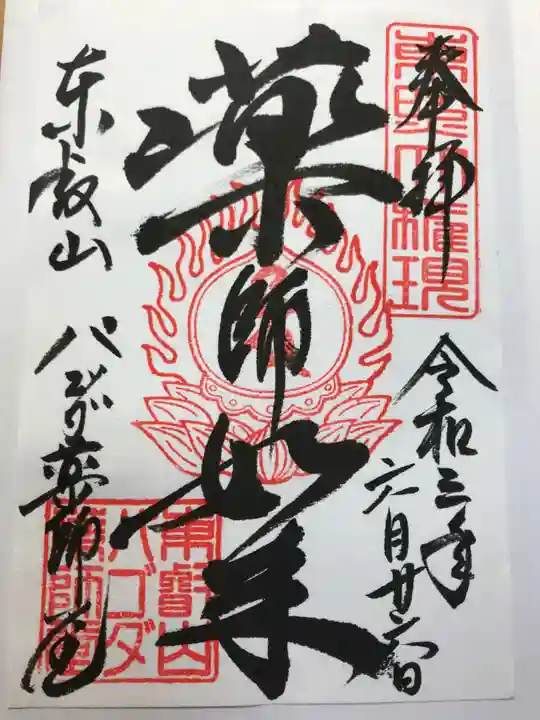 奉拝
東照大権現
令和三年
六月廿六日
薬師如来
東叡山
パゴダ薬師堂
東叡山
パゴダ
薬師堂